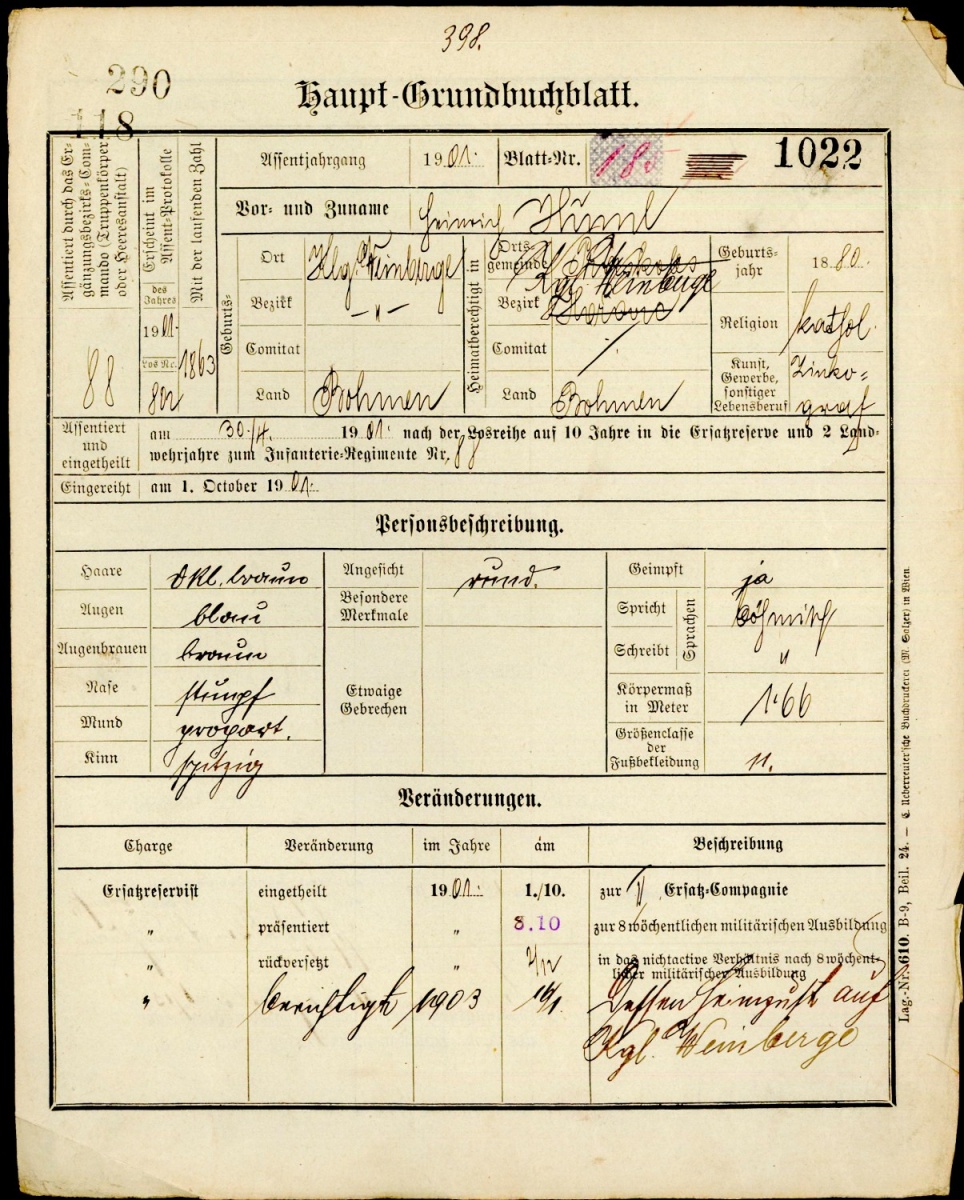 398.
290
118
Haupt-Grundbuchblatt.
Assentiert durch das Ergänzungsbezirks-Commando (Truppenkörper oder Heeresanstalt)
88
Erscheint im Assent-Protokolle
des Jahres
1901
Los Nr.
802
Mit der laufenden Zahl
1863
Assentjahrgang 1901. Blatt-Nr. 18. 1022
Vor- und Zuname Heinrich
Geburts-
Ort Klg. Weinberge
Bezirk -"-
Comitat
Land Bohmen
Heimatberechtigt in
Ortsgemeind
Kgl. Weinberge
Bezirk
Comitat
Land Bohmen
Geburtsjahr 1880.
Religion kathol.
Kunst, Gewerbe, sonstiger Lebensberuf Zinkograf
Assentiert und eingetheilt
am 30./4. 1901. nach der Losreihe auf 10 Jahre in die Ersatzreserve und 2 Land-
wehrjahre zum Infanterie-Regimente Nr. 88
Eingereiht am 1. October 1901.
Personsbeschreibung.
Haare dkl. braun
Augen blau
Augenbrauen braun
Nase stumpf
Mund proport.
Kinn spitzig
Angesicht rund.
Besondere Merkmale
Etwaige Gebrechen
Geimpft ja
Spricht böhmisch
Schreibt "
Sprachen
Körpermaß in Meter 1·66
Größenclasse der Fußbekleidung 11.
Veränderungen.
Charge Veränderung im Jahre am Beschreibung
Ersatzreservist eingetheilt 1901. 1./10. zur Ersatz-Compagnie
" präsentiert " 3.10 zur 8 wöchentlichen militärischen Ausbildung
" rückversetzt " 2/12 in das nichtactive Verhältnis nach 8 wöchent-
licher militärischer Ausbildung
" berichtigt 1903 14/1. Dessen Heimzust. auf
Kgl. Weinberge
Lag.-Nr. 610. B-9, Beil. 24. — C. Ueberreuter'sche Buchdruckerei (M. Salzer) in Wien.